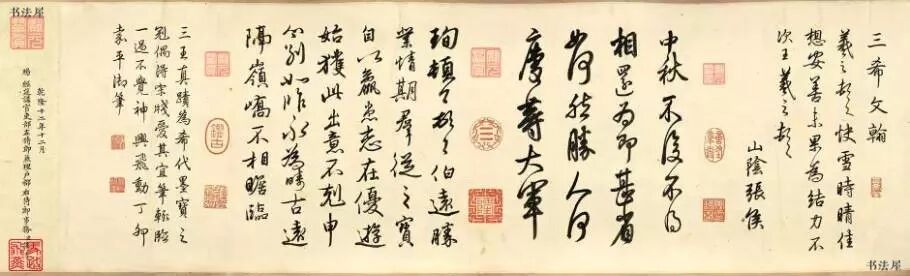 书法屋
三希文翰
羲之頓首快雪時晴佳
想安善未果為結力不
次王羲之頓首
山陰張侯
中秋不復不得
相還為即甚省
如何然勝人何
慶等大軍
珣頓首頓首伯遠勝
業情期羣從之寳
自以羸患志在優遊
始獲此出意不剋申
分別如昨永為疇古遠
隔嶺嶠不相瞻臨
三王真蹟為希代墨寳之
冠偶得宋牋愛其宜筆輒臨
一過不覺神興飛動丁卯
嘉平御筆
乾隆十二年十二月
賜經筵講官吏部右侍郎兼理戶部右侍郎事務
书法屋